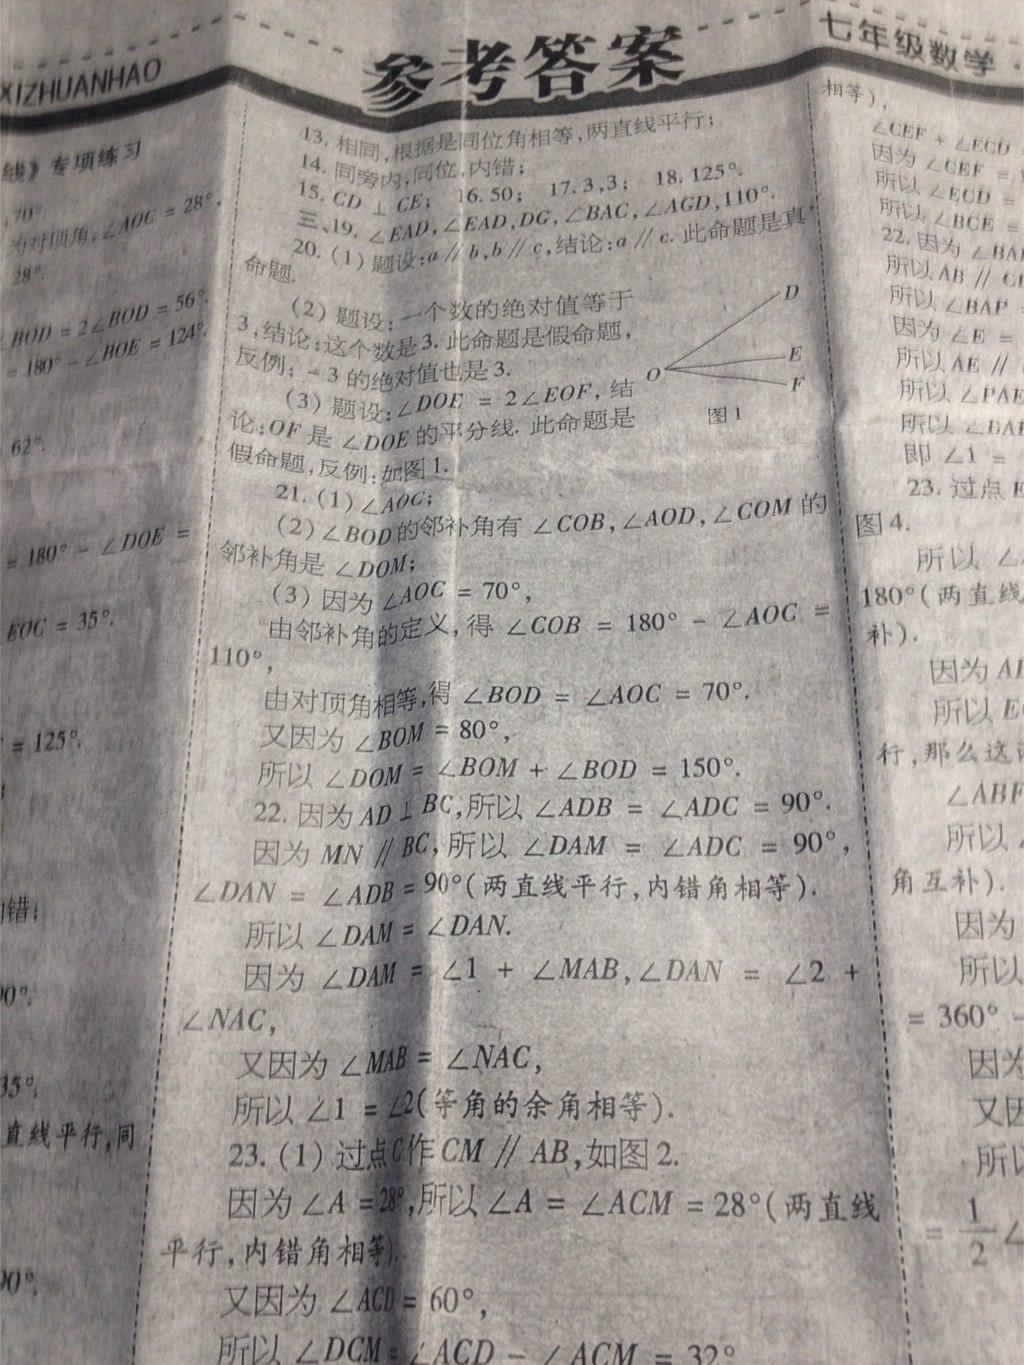 XIZHUANHAO
参考答案
七年级数学·
线》专项练习
70°.
为对顶角,∠AOC = 28°,
28°.
∠BOD = 2∠BOD = 56°.
= 180° - ∠BOE = 124°.
62°.
= 180° - ∠DOE =
EOC = 35°.
= 125°.
内错;
90°.
35°.
直线平行,同
90°.
13. 相同,根据是同位角相等,两直线平行;
14. 同旁内,同位,内错;
15. CD ⊥ CE; 16. 50; 17. 3,3; 18. 125°.
三、19. ∠EAD,∠EAD,DG,∠BAC,∠AGD,110°.
20. (1) 题设:a∥b,b∥c,结论:a∥c. 此命题是真
命题.
(2) 题设:一个数的绝对值等于
3,结论:这个数是3. 此命题是假命题,
反例: -3的绝对值也是3.
(3) 题设:∠DOE = 2∠EOF, 结
论:OF是∠DOE的平分线. 此命题是
假命题,反例:如图1.
D
E
O
F
图1
21. (1) ∠AOC;
(2) ∠BOD的邻补角有∠COB,∠AOD,∠COM的
邻补角是∠DOM;
(3) 因为∠AOC = 70°,
由邻补角的定义, 得∠COB = 180° - ∠AOC =
110°,
由对顶角相等,得∠BOD = ∠AOC = 70°.
又因为∠BOM = 80°,
所以∠DOM = ∠BOM + ∠BOD = 150°.
22. 因为AD⊥BC,所以∠ADB = ∠ADC = 90°.
因为MN∥BC,所以∠DAM = ∠ADC = 90°,
∠DAN = ∠ADB = 90°(两直线平行,内错角相等).
所以∠DAM = ∠DAN.
因为∠DAM = ∠1 + ∠MAB,∠DAN = ∠2 +
∠NAC,
又因为∠MAB = ∠NAC,
所以∠1 = ∠2(等角的余角相等).
23. (1) 过点C作CM∥AB,如图2.
因为∠A = 28°,所以∠A = ∠ACM = 28°(两直线
平行,内错角相等).
又因为∠ACD = 60°,
所以∠DCM = ∠ACD - ∠ACM = 32°
相等),
∠CEF + ∠ECD
因为∠CEF =
所以∠ECD =
所以∠BCE =
22. 因为∠BA
所以AB∥C
所以∠BAP =
因为∠E =
所以AE∥
所以∠PAE
所以∠BA
即∠1 =
23. 过点E
图4.
所以∠
180°(两直线
补).
因为A
所以E
行,那么这
∠ABF
所以
角互补).
因为
所以
= 360° -
因为
又因
所以
= 1/2 ∠